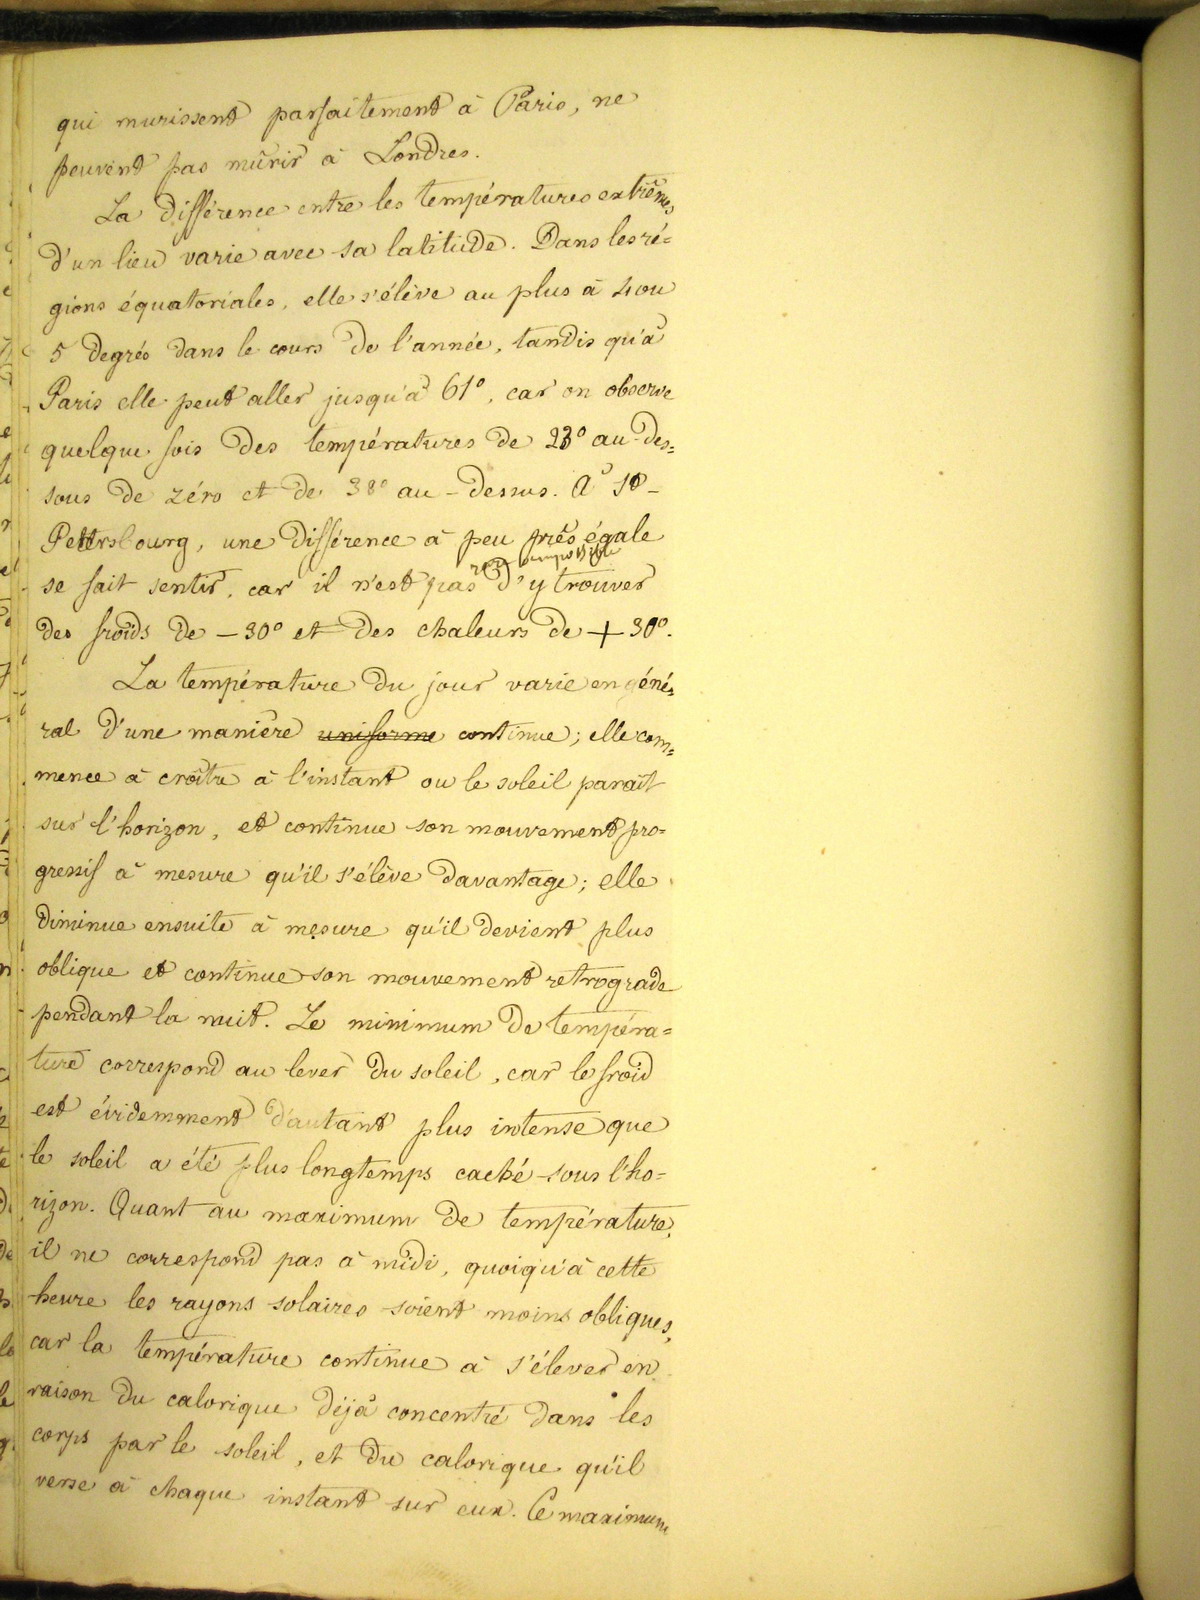 qui murissent parfaitement à Paris, ne
peuvent pas mûrir à Londres.
La différence entre les températures extrêmes
d'un lieu varie avec sa latitude. Dans les ré=
gions équatoriales, elle s'élève au plus à 4 ou
5 degrés dans le cours de l'année, tandis qu'à
Paris elle peut aller jusqu'à 61°, car on observe
quelque fois des températures de 23° au-des=
sous de zéro et de 38° au-dessus. A St-
Petersbourg, une différence à peu près égale
se fait sentir, car il n'est pas d'y trouver
des froids de -30° et des chaleurs de +30°.
La température du jour varie en géné=
ral d'une manière uniforme continue; elle com=
mence à croître à l'instant ou le soleil parait
sur l'horizon, et continue son mouvement pro=
gressif à mesure qu'il s'élève davantage; elle
diminue ensuite à mesure qu'il devient plus
oblique et continue son mouvement retrograde
pendant la nuit. Le minimum de tempéra=
ture correspond au lever du soleil, car le froid
est évidemment d'autant plus intense que
le soleil a été plus longtemps caché sous l'ho=
rizon. Quant au maximum de température,
il ne correspond pas à midi, quoiqu'à cette
heure les rayons solaires soient moins obliques,
car la température continue à s'élever en
raison du calorique déjà concentré dans les
corps par le soleil, et du calorique qu'il
verse à chaque instant sur eux. Ce maximum